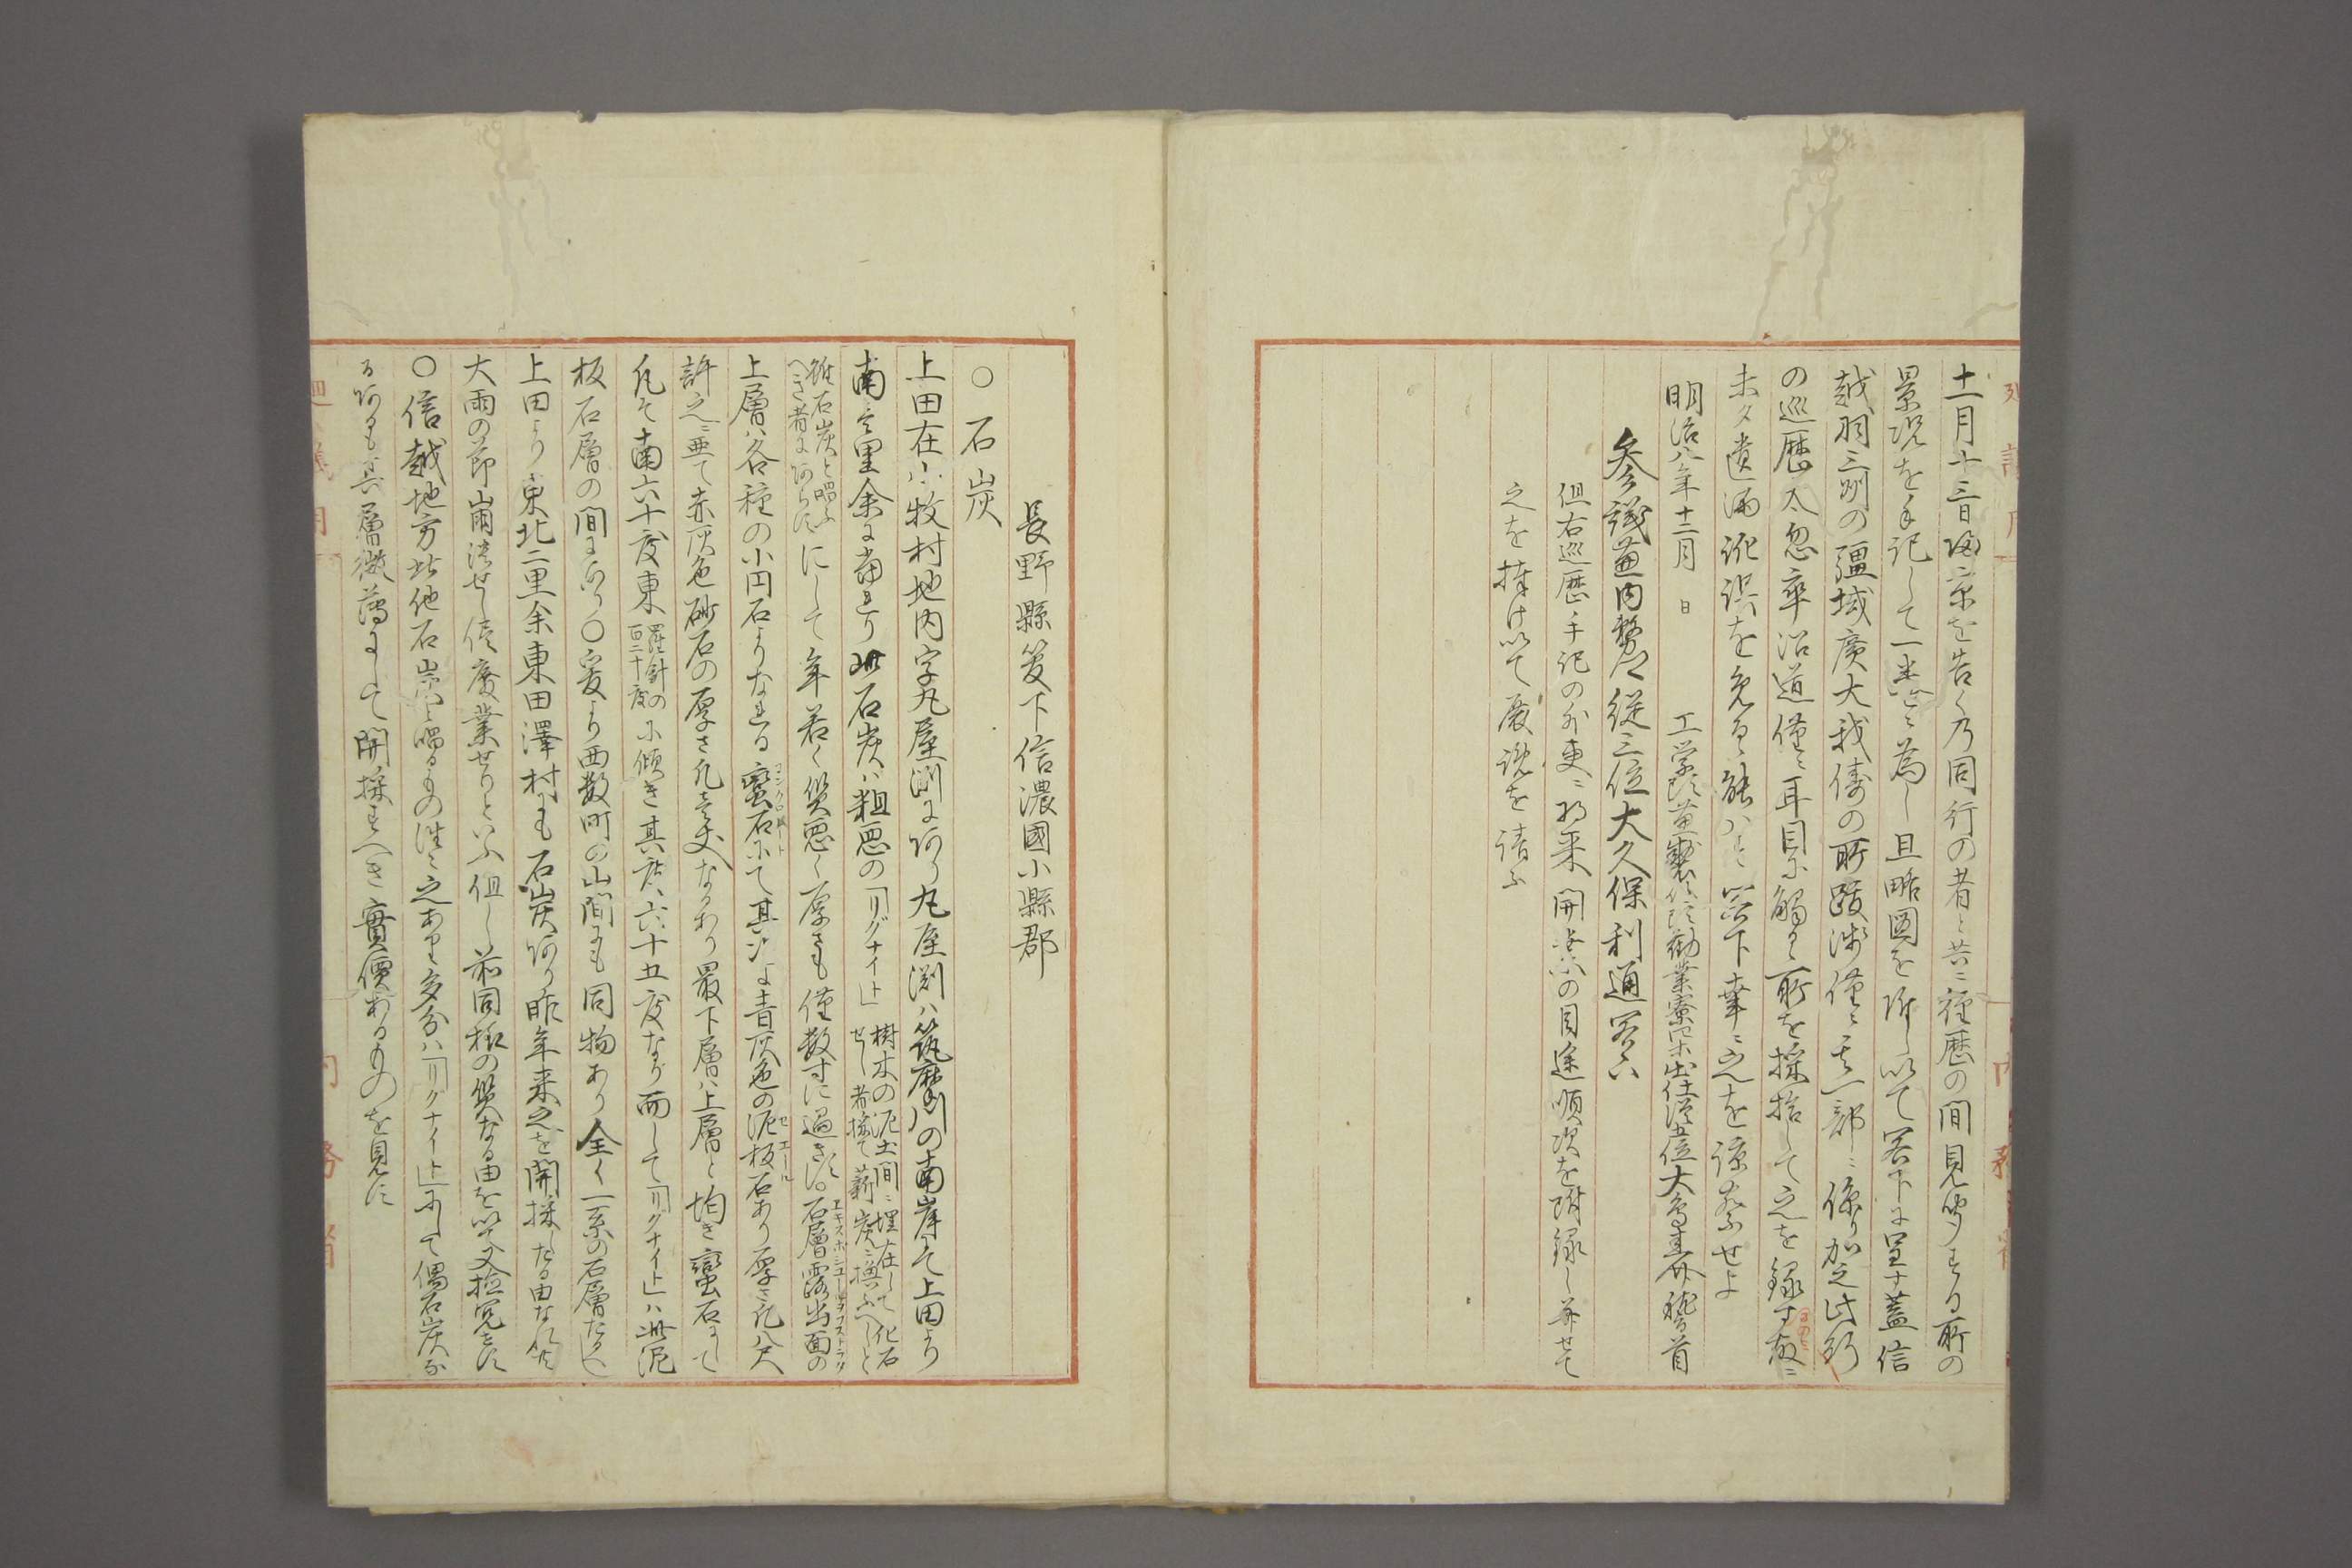 十一月十三日帰京を告く乃同行の者と共ニ経歴の間見聞する所の
景況を手記して一巻と為し且略図を附し以て閣下に呈す蓋信
越羽三州の疆域廣大我儕の所跋渉僅ニ其一部ニ係り加之此行
の巡歴太忽卒沿道僅ニ耳目に觸るゝ所を採拾して之を録す故ニ
未タ遺漏訛誤を免るゝ能ハす閣下幸ニ之を諒察せよ
明治八年十二月 日 工学頭兼製作頭勧業寮四等出仕従五位大鳥圭介稽首
参議兼内務卿従三位大久保利通閣下
但右巡歴手記の外更ニ将来開業の目途順次を附録し并せて
之を捧け以て展覧を請ふ
長野縣管下信濃國小縣郡
○石炭
上田在小牧村地内字丸屋渕にあり丸屋渕ハ筑摩川の南岸にて上田より
南壱里余に當れり此石炭ハ粗悪の「リグナイト」樹木の泥土間ニ埋在して化石
せし者採て薪炭ニ換ふへしと
雖石炭と唱ふ
へき者にあらす
にして年若く質悪く厚さも僅数寸に過きす石層露出面の
上層ハ各種の小円石よりなれる蠻石にて其次は青灰色の泥板石あり厚さ凡八尺
許之ニ亜て赤灰色砂石の厚さ凡壱丈なるあり最下層ハ上層と均き蠻石にして
凡そ南六十度東羅針の
百二十度
に傾き其度六十五度なり而して「リグナイト」ハ此泥
板石層の間にあり○爰より西数町の山間にも同物あり全く一系の石層たるへし
上田より東北二里余東田澤村にも石炭あり昨年来之を開採したる由なれ共
大雨の節崩潰せし後廢業せりといふ但し前同様の質なる由を以て又検究せす
○信越地方此他石炭と唱るもの往々之あれ共多分ハ「リグナイト」にして偶石炭な
るあるも其層微薄にして開採すへき實價あるものを見す